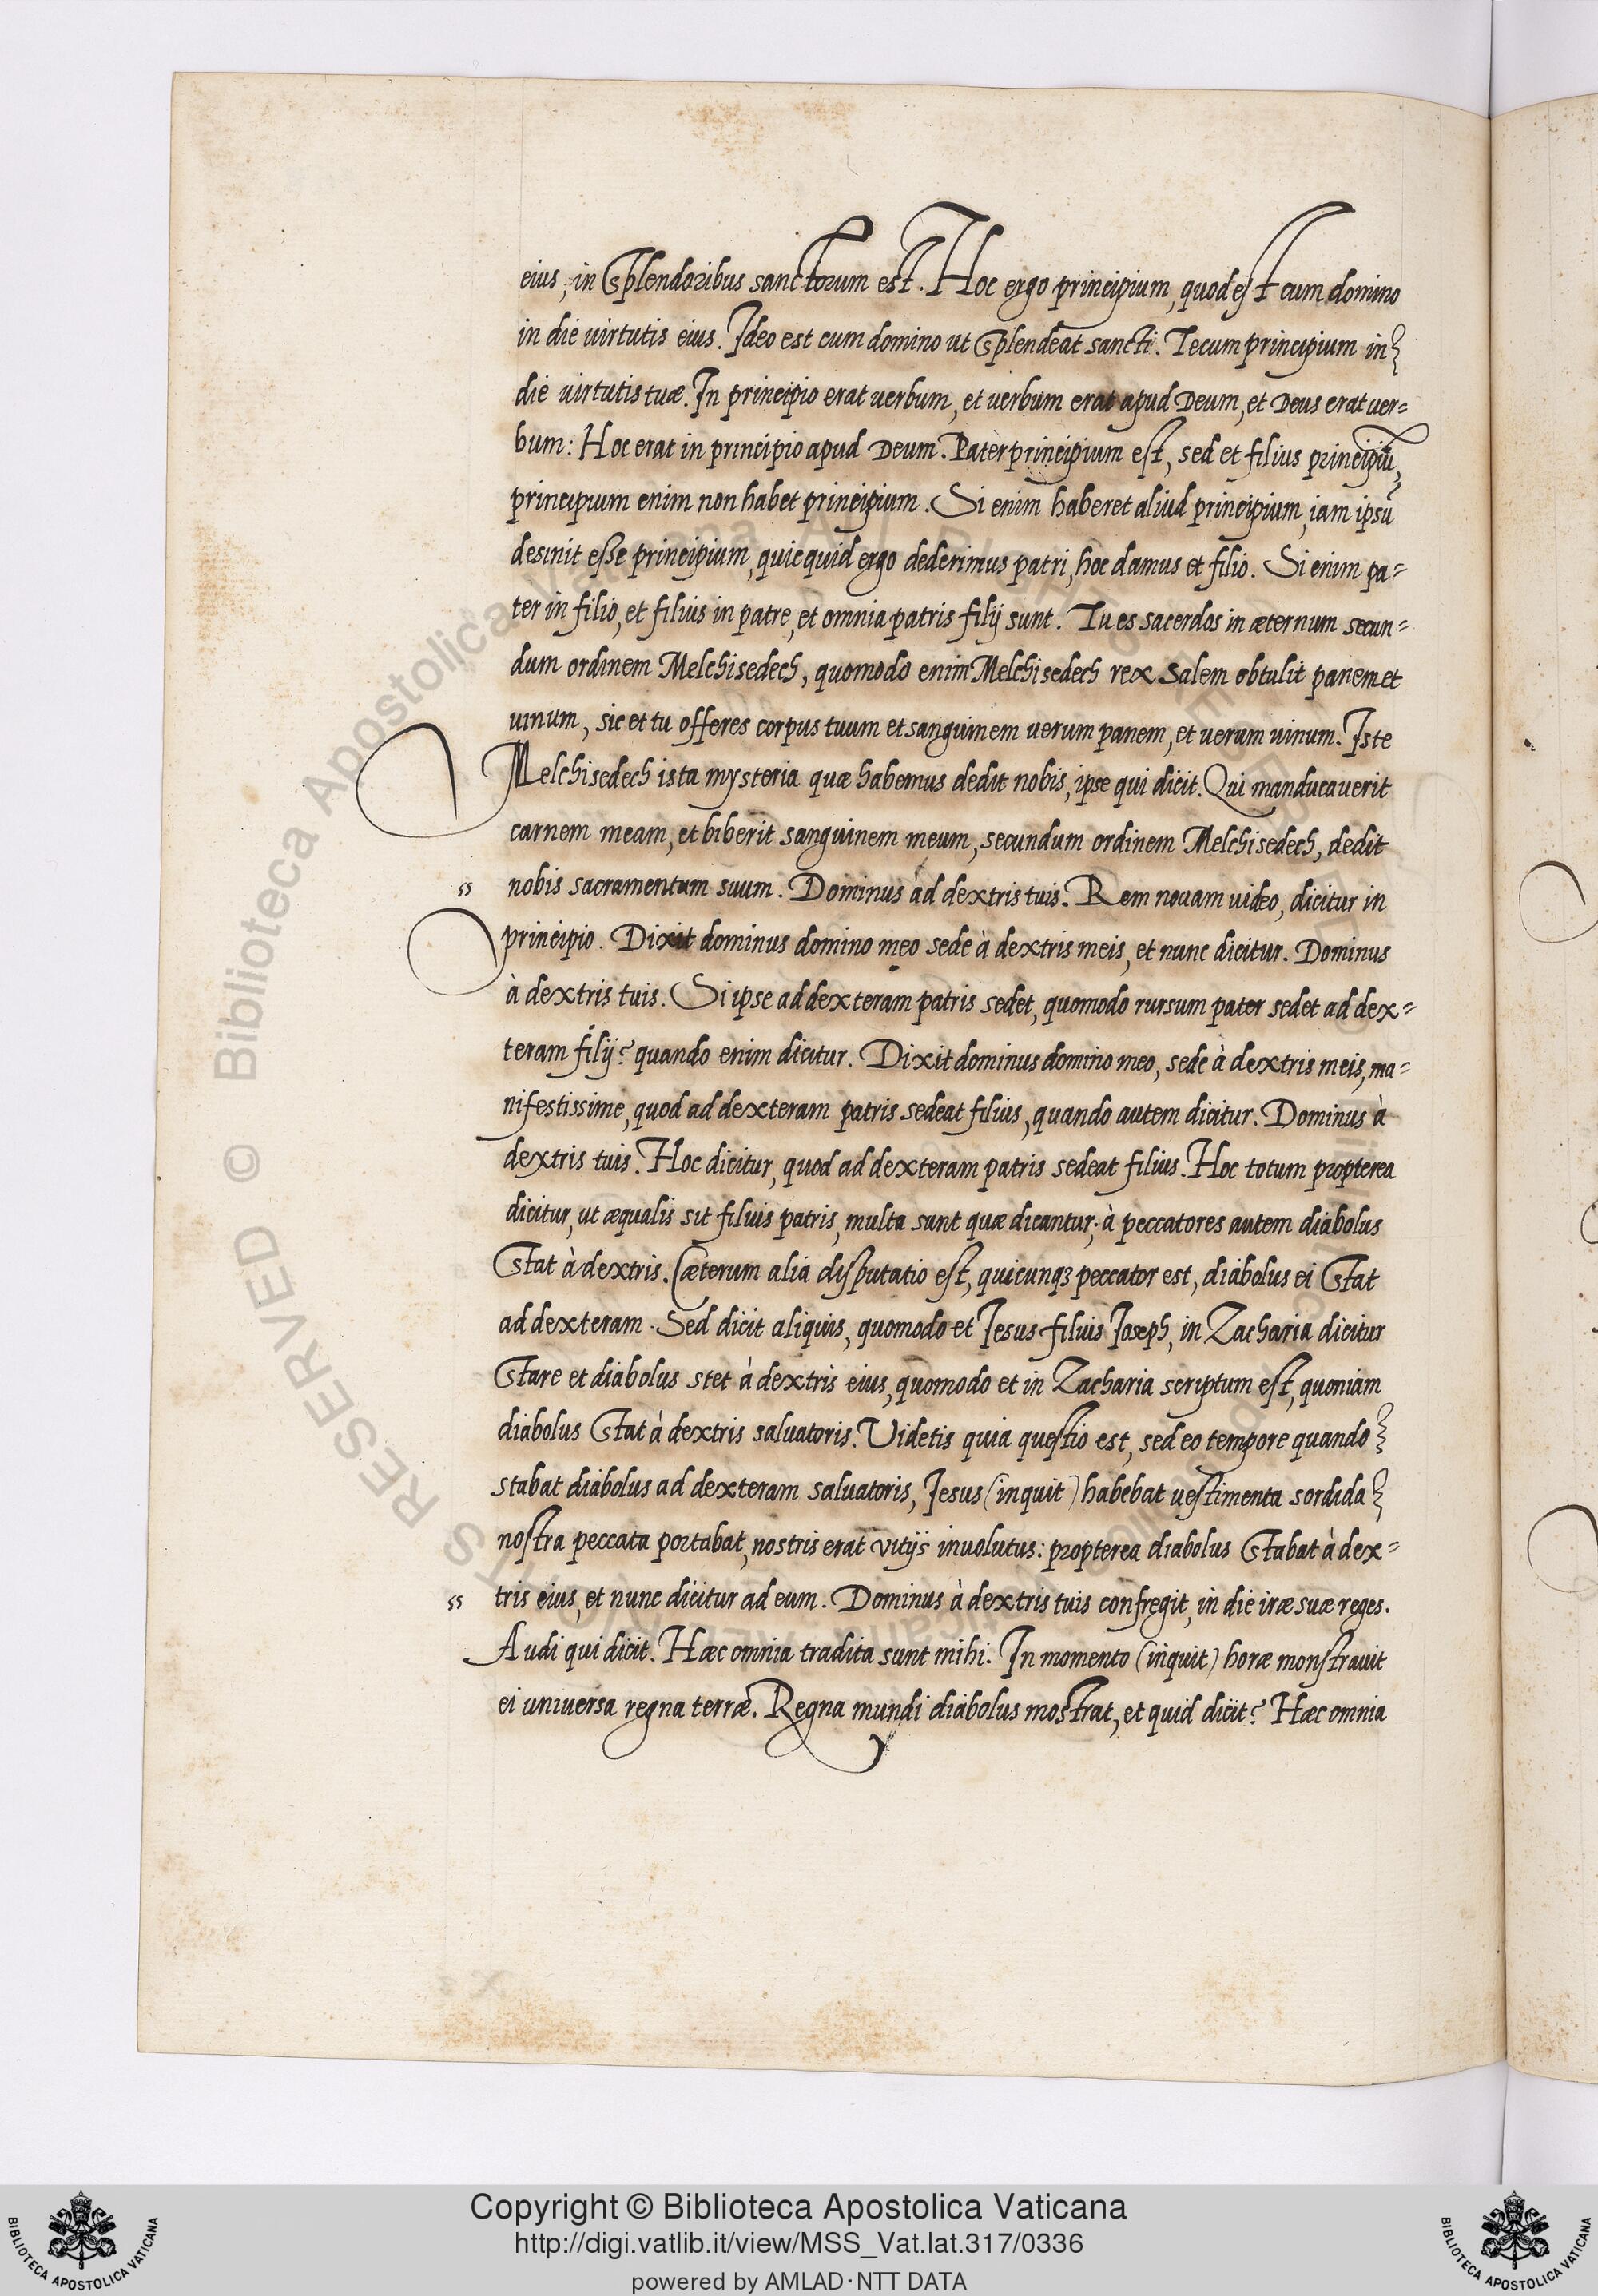 eius, in splendoribus sanctorum est. Hoc ergo principium, quod est cum domino
in die uirtutis eius. Ideo est cum domino ut splendeat sancti. Tecum principium in
die uirtutis tuæ. In principio erat uerbum, et uerbum erat apud Deum, et Deus erat uer=
bum: Hoc erat in principio apud Deum. Pater principium est, sed et filius principiũ,
principium enim non habet principium. Si enim haberet aliud principium, iam ipsũ
desinit esse principium, quicquid ergo dederimus patri, hoc damus et filio. Si enim pa=
ter in filio, et filius in patre, et omnia patris filij sunt. Tu es sacerdos in æternum secun=
dum ordinem Melchisedech, quomodo enim Melchisedech rex Salem obtulit panem et
uinum, sic et tu offeres corpus tuum et sanguinem uerum panem, et uerum uinum. Iste
Melchisedech ista mysteria quæ habemus dedit nobis, ipse qui dicit. Qui manducauerit
carnem meam, et biberit sanguinem meum, secundum ordinem Melchisedech, dedit
ss nobis sacramentum suum. Dominus àd dextris tuis. Rem nouam uideo, dicitur in
principio. Dixit dominus domino meo sede à dextris meis, et nunc dicitur. Dominus
à dextris tuis. Si ipse ad dexteram patris sedet, quomodo rursum pater sedet ad dex=
teram filij? quando enim dicitur. Dixit dominus domino meo, sede à dextris meis, ma=
nifestissime, quod ad dexteram patris sedeat filius, quando autem dicitur. Dominus à
dextris tuis. Hoc dicitur, quod ad dexteram patris sedeat filius. Hoc totum propterea
dicitur, ut æqualis sit filius patris, multa sunt quæ dicantur; à peccatores autem diabolus
stat à dextris. Cæterum alia disputatio est, quicunqꝫ peccator est, diabolus ei stat
ad dexteram. Sed dicit aliquis, quomodo et Iesus filius Ioseph, in Zacharia dicitur
stare et diabolus stet à dextris eius, quomodo et in Zacharia scriptum est, quoniam
diabolus stat à dextris saluatoris. Uidetis quia questio est, sed eo tempore quando
stabat diabolus ad dexteram saluatoris, Iesus (inquit) habebat uestimenta sordida
nostra peccata portabat, nostris erat vitijs inuolutus: propterea diabolus stabat à dex=
ss tris eius, et nunc dicitur ad eum. Dominus à dextris tuis confregit, in die iræ suæ reges.
Audi qui dicit. Hæc omnia tradita sunt mihi. In momento (inquit) horæ monstrauit
ei uniuersa regna terræ. Regna mundi diabolus mostrat, et quid dicit? Hæc omnia
Copyright © Biblioteca Apostolica Vaticana
http://digi.vatlib.it/view/MSS_Vat.lat.317/0336
powered by AMLAD·NTT DATA
BIBLIOTECA APOSTOLICA VATICANA
BIBLIOTECA APOSTOLICA VATICANA